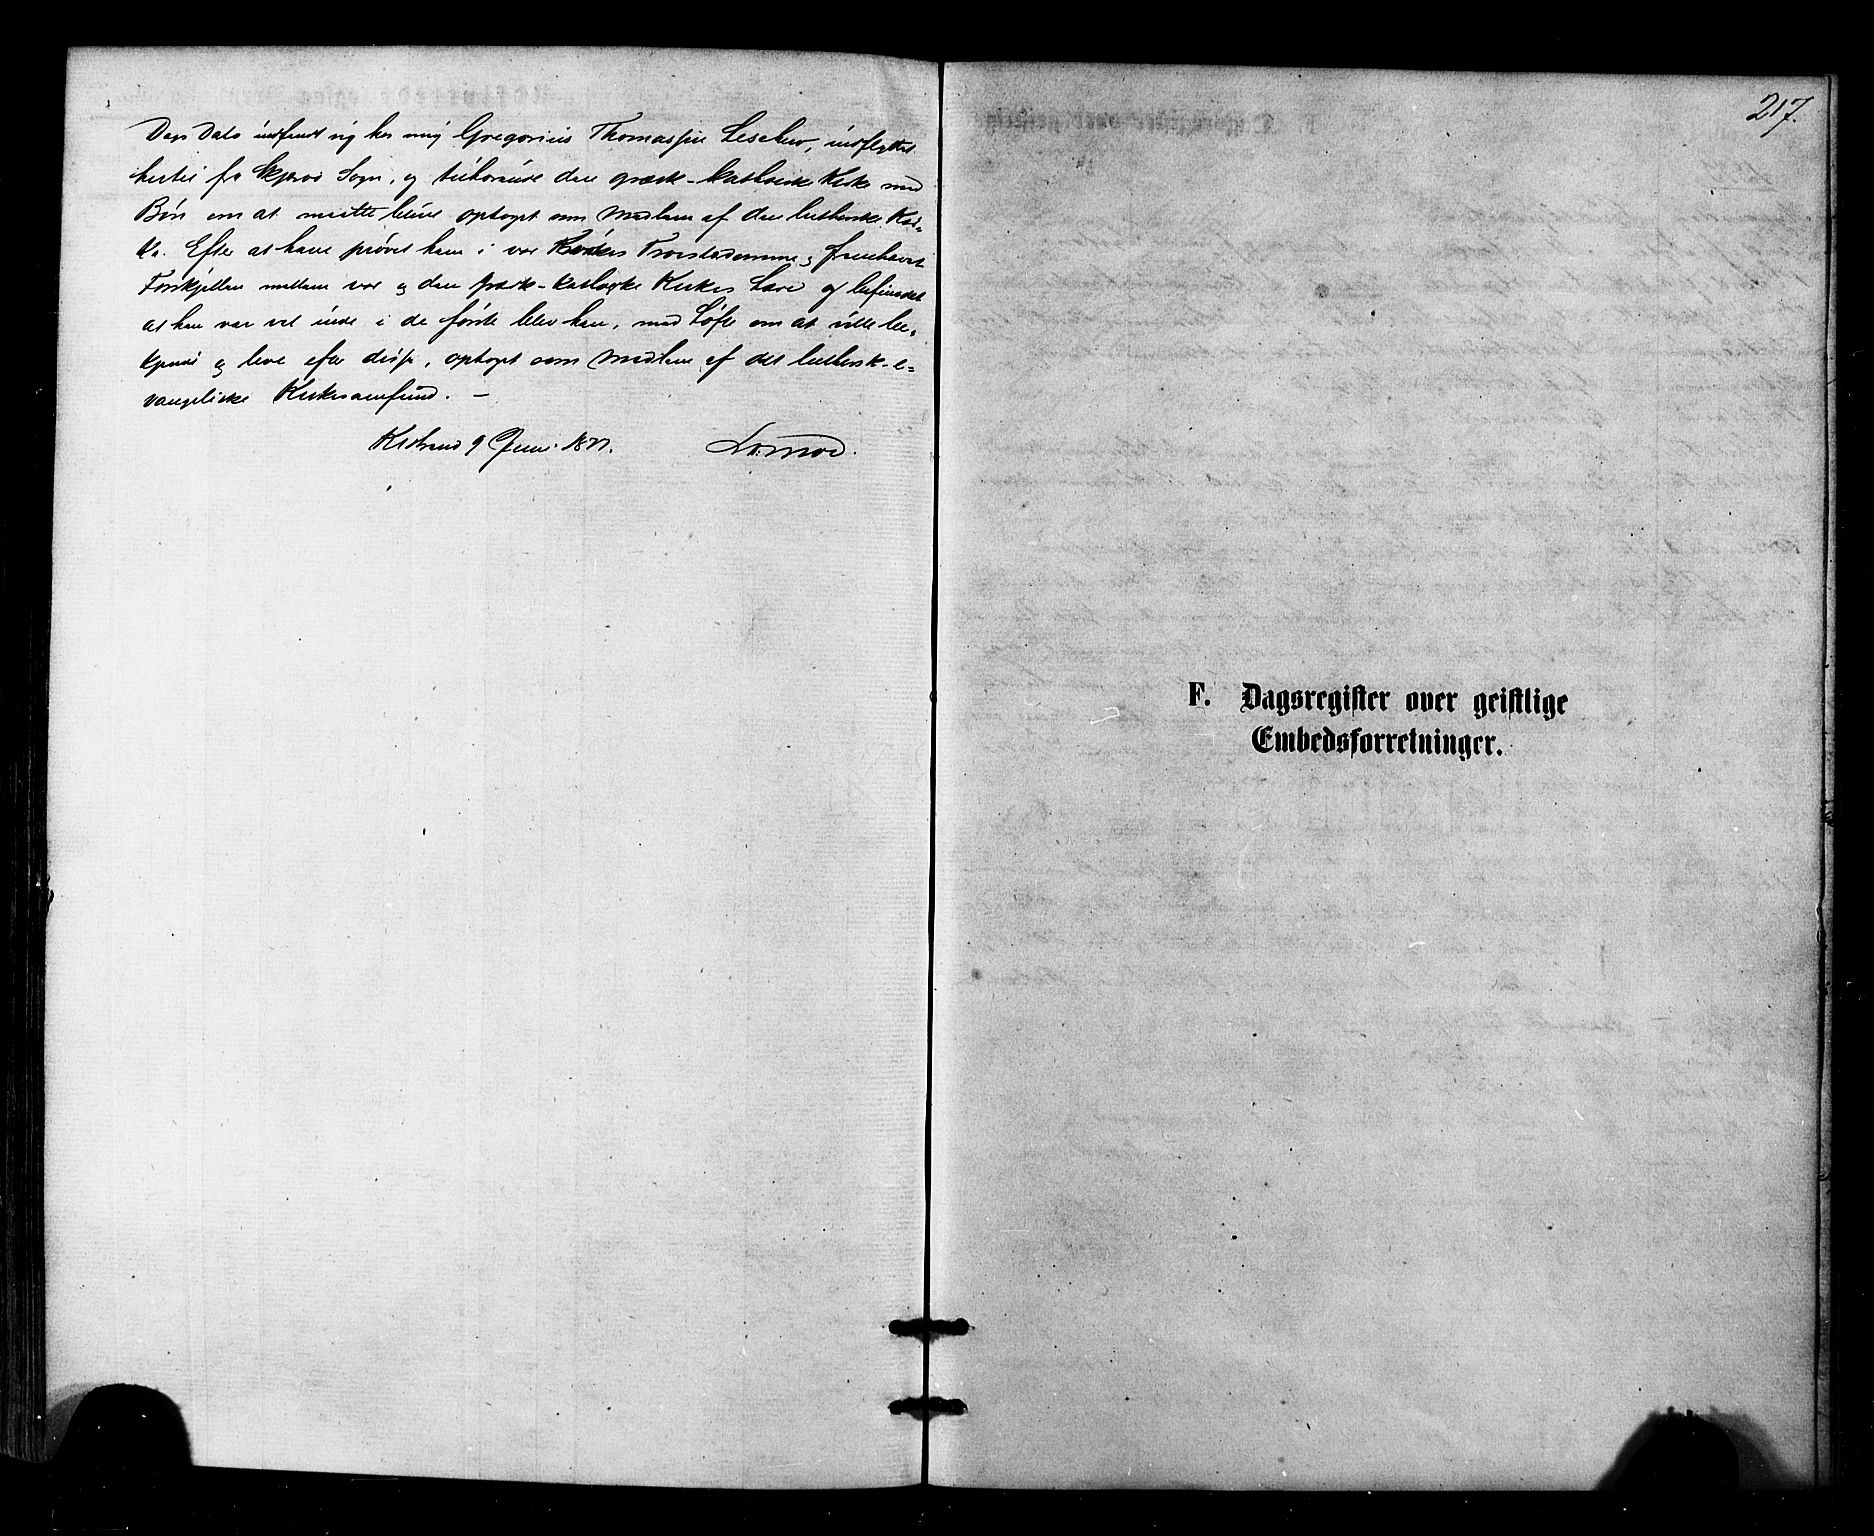 Dags Dato indfandt sig hos mig Gregorius Thomassen Leschew, indflyttet
hertil fra Skjervø Sogn, og tilhørende den græsk-katholske Kirke med
Bøn om at maatte blive optaget som Medlem af den lutherske Kir-
ke. Efter at have prøvet ham i vor Kirkes Troeslærdomme og fremhævet
Forskjellen mellem vor og den græsk-katholske Kirkes Lære og befundet
at han var vel inde i de første blev han, med Løfte om at ville be-
kjende og leve efter disse, optaget som Medlem af det luthersk-e-
vangeliske Kirkesamfund. -
Kistrand 9 Juni 1877.
217.
F. Dagsregister over geistlige
Embedsforretninger.